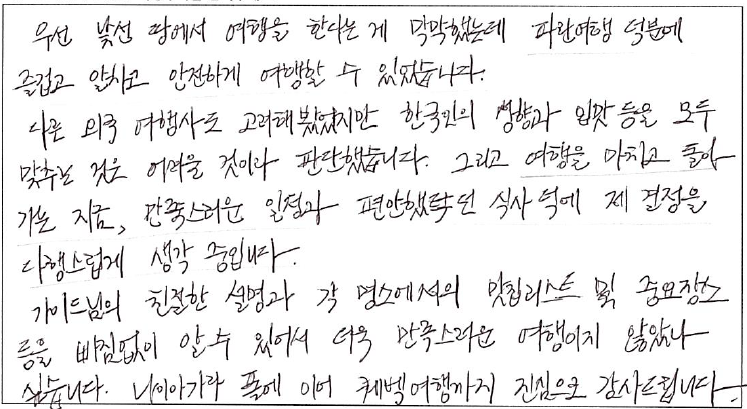 우선 낯선 땅에서 여행을 한다는 게 막막했는데 파란여행 덕분에
즐겁고 알차고 안전하게 여행할 수 있었습니다.
다른 외국 여행사도 고려해봤었지만 한국인의 성향과 입맛 등을 모두
맞추는 것은 어려울 것이라 판단했습니다. 그리고 여행을 마치고 돌아
가는 지금, 만족스러운 일정과 편안했던 식사 덕에 제 결정을
다행스럽게 생각 중입니다.
가이드님의 친절한 설명과 각 명소에서의 맛집리스트 및 중요장소
등을 빠짐없이 알 수 있어서 더욱 만족스러운 여행이지 않았나
싶습니다. 나이아가라 폭에 이어 퀘벡여행까지 진심으로 감사드립니다.